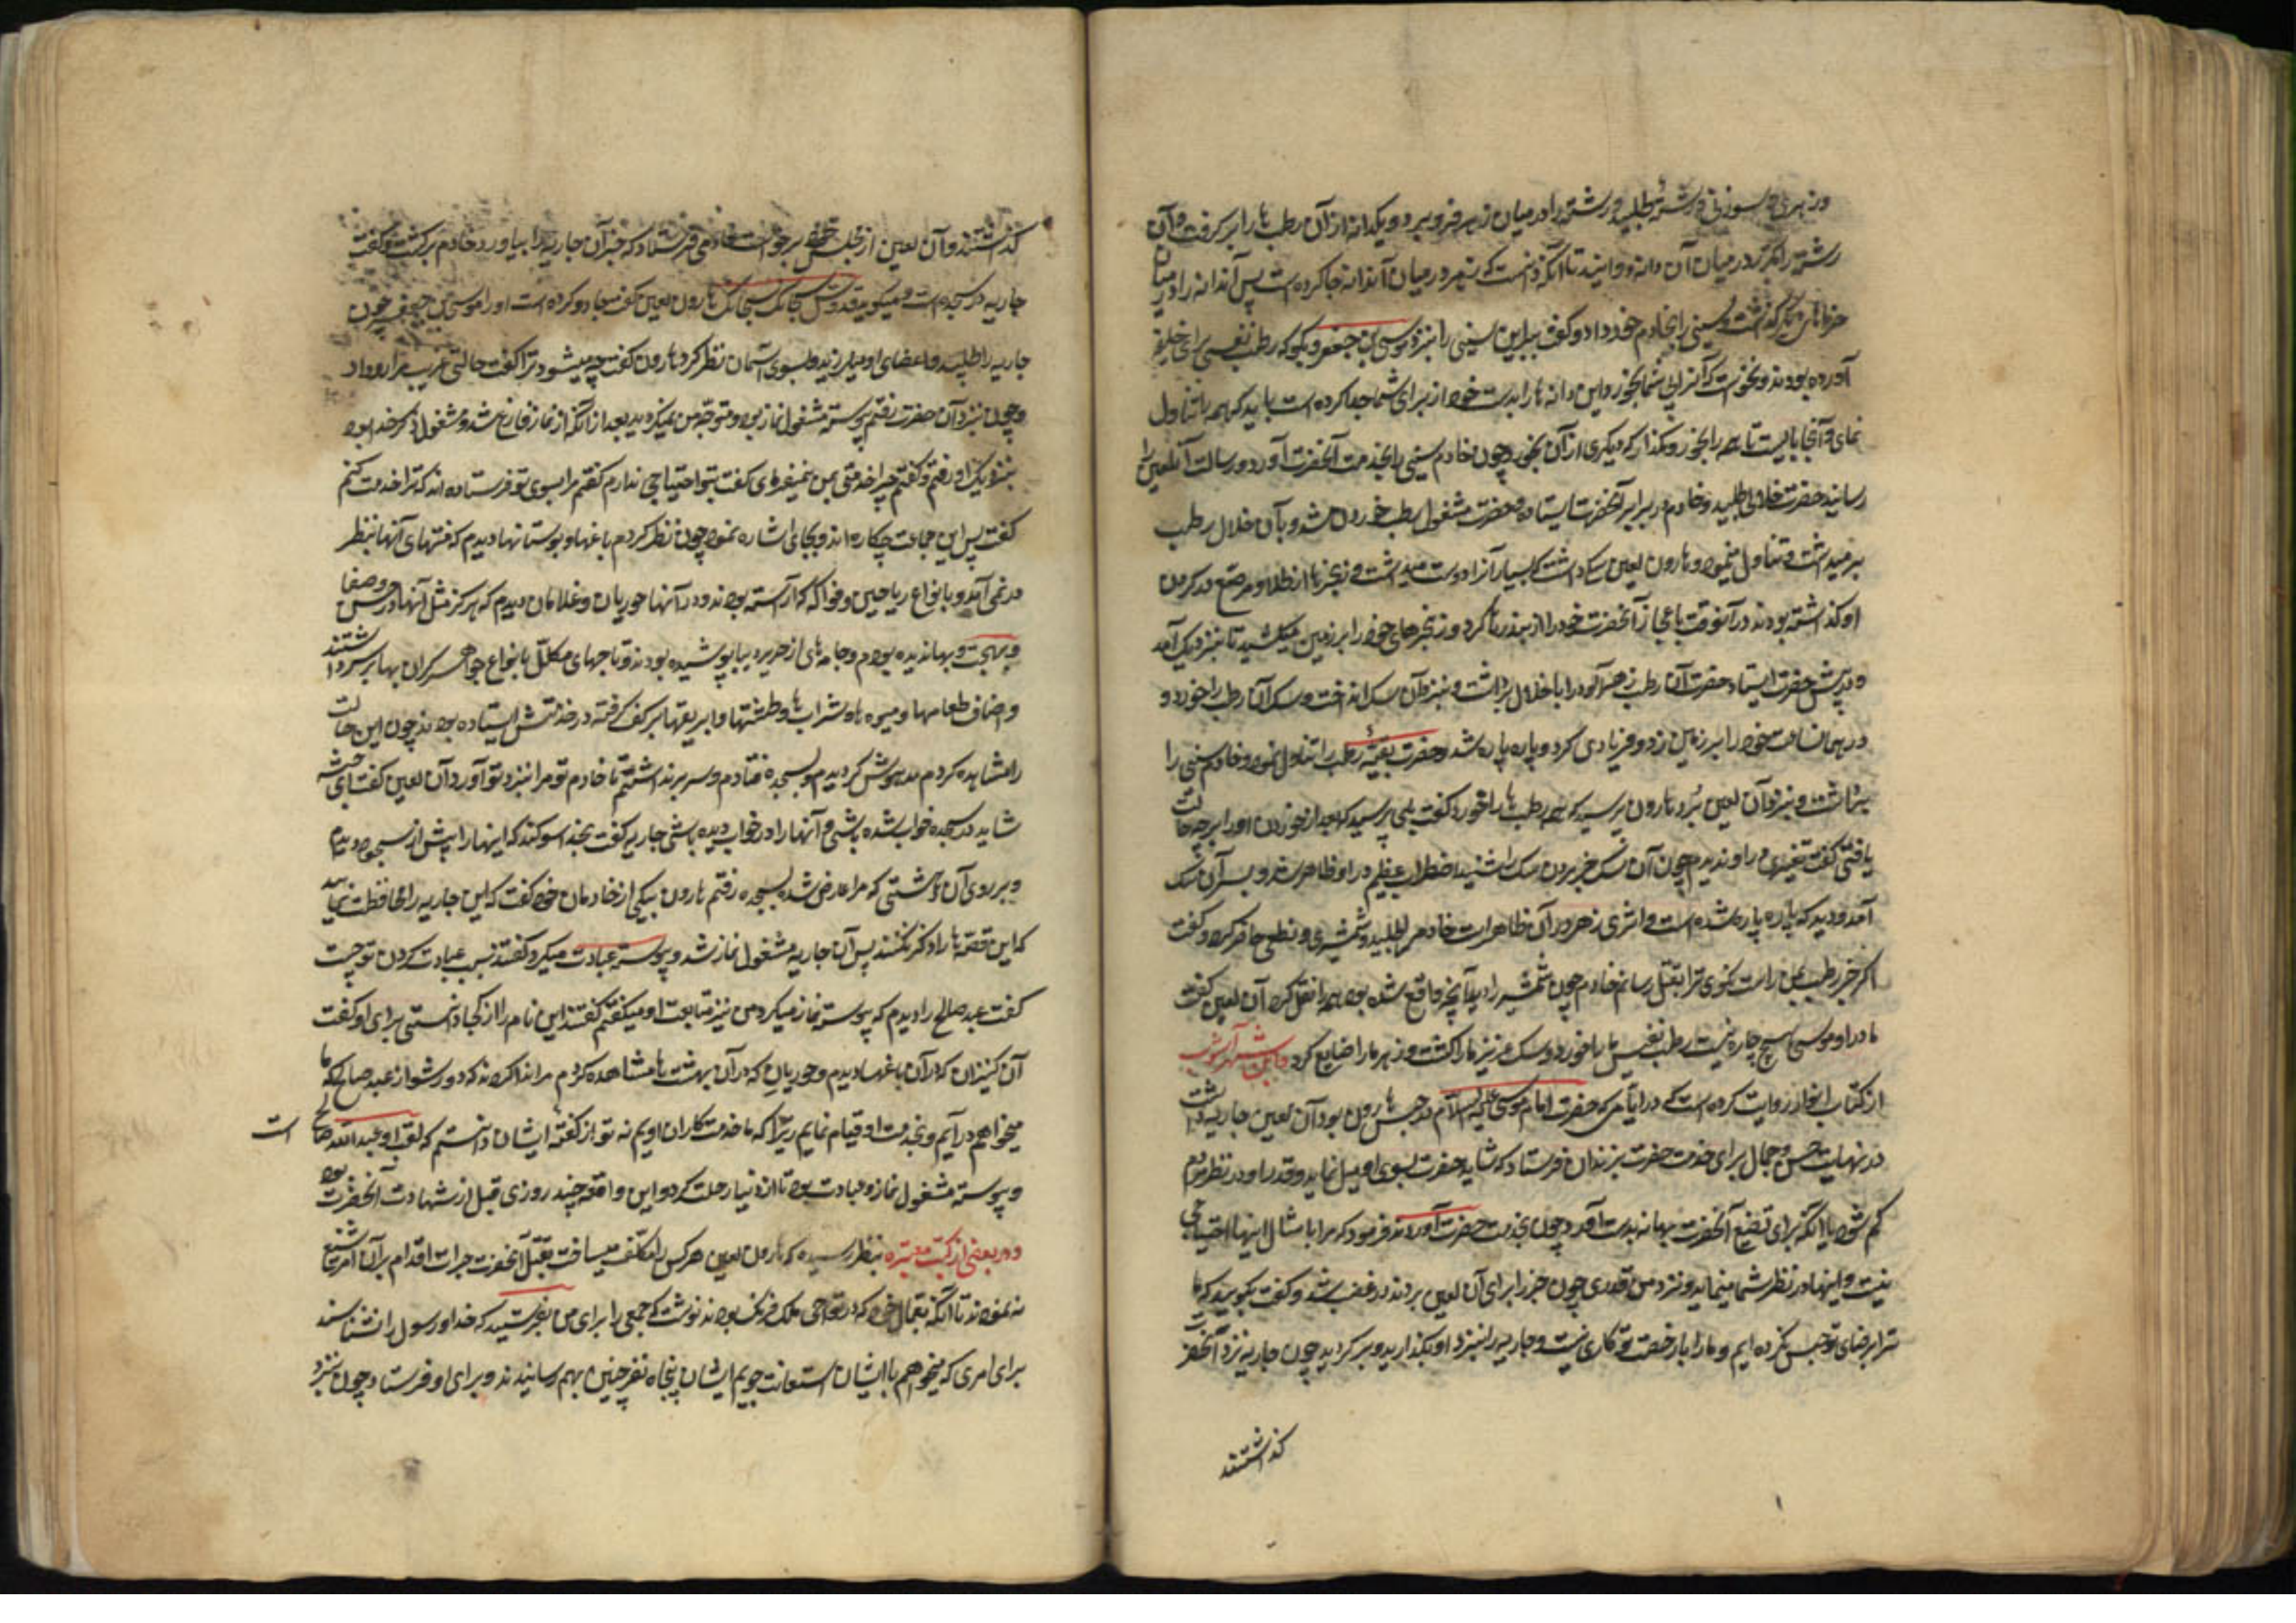 و زهری و سوزنی و رشتهٔ طلبید و رشته را در میان زهر فرو برد و یکدانه از آن رطب ها را برگرفت و آن
رشته را مکرر در میان آن دانه دوانید تا آنکه دانست که زهر در میان آن دانه جا کرده است پس آن دانه را در میان
خرماهای دیگر گذاشت و سینی را بخادم خود داد و گفت ببر این سینی را بنزد موسی بن جعفر و بگو که رطب نفیسی برای خلیفه
آورده بودند و نخواست که آنرا بی شما بخورد و این دانه ها را بدست خود از برای شما جدا کرده است باید که همه را تناول
نمائی و آنجا بایست تا همه را بخورد و مگذار که دیگری از آن بخورد چون خادم سینی را بخدمت آنحضرت آورد و رسالت آن لعین را
رسانید حضرت خلالی طلبید و خادم در برابر آنحضرت ایستاده و حضرت مشغول رطب خوردن شد و بآن خلال رطب
بر میداشت و تناول مینمود و هارون لعین سگی داشت که بسیار آنرا دوست میداشت و زنجیرها از طلا و مرصع در گردن
او گذاشته بودند در آنوقت باعجاز آنحضرت خود را از بند رها کرد و زنجیرهای خود را بر زمین میکشید تا بنزدیک آمد
و در پیش حضرت ایستاد حضرت آن رطب زهرآلود را با خلال برداشت و بنزد آن سک انداخت و سک آن رطب را خورد و
در همان ساعت خود را بر زمین زد و فریادی کرد و پاره پاره شد و حضرت بقیهٔ رطب را تناول نمود و خادم سینی را
برداشت و بنزد آن لعین برد هارون پرسید که همه رطب ها را خورد گفت بلی پرسید که بعد از خوردن او را بر چه حالت
یافتی گفت تغییری در او ندیدم چون آن سک خبر مردن سک را شنید اضطراب عظیم در او ظاهر شد و بسر آن سک
آمد و دید که پاره پاره شده است و اثری زهر در آن ظاهر است خادم را طلبید و شمشیری و نطعی حاضر کرد و گفت
اگر خبر رطب بمن راست نگوی ترا بقتل رسانم خادم چون شمشیر را دید آنچه واقع شده بود همه را نقل کرد آن لعین گفت
ما در او موسی هیچ چاره نیست رطب نفیس ما را خورد و سک عزیز ما را کشت و زهر ما را ضایع کرد و ابن شهر آشوب
از کتاب انوار روایت کرده است که در ایامی که حضرت امام موسی علیه السلام در حبس هارون بود آن لعین جاریه داشت
در نهایت حسن و جمال برای خدمت حضرت بزندان فرستاد که شاید حضرت بسوی او میل نماید و قدر او در نظر مردم
کم شود یا آنکه برای تضییع آنحضرت بهانه بدست آورد چون بخدمت حضرت آوردند فرمود که مرا با مثال اینها احتیاجی
نیست و اینها در نظر شما مینماید و نزد من قدری چون خبر را برای آن لعین بردند در غضب شد و گفت بگوئید که ما
ترا برضای تو حبس نکرده ایم و ما را با رخصت تو کاری نیست و جاریه را نزد او بگذارید و برگردید چون جاریه نزد آنحضرت
گذاشتند
گذاشتند و آن لعین از مجلس خود برخواست خادمی فرستاد که خبر آن جاریه را بیاورد خادم برگشت و گفت
جاریه در سجده است و میگوید قدوس سبحانک سبحانک هارون لعین گفت جادو کرده است او را موسی بن جعفر چون
جاریه را طلبید و اعضای او میلرزید و بسوی آسمان نظر کرد هارون گفت چه میشود ترا گفت حالتی غریب مرا رو داد
و چون نزد آن حضرت رفتم پیوسته مشغول نماز بود و متوجه من نمیگردید بعد از آنکه از نماز فارغ شد و مشغول ذکر خدا بود
بنزدیک او رفتم و گفتم چرا خدمتی بمن نمیفرمای گفت بتو احتیاجی ندارم گفتم مرا بسوی تو فرستاده اند که ترا خدمت کنم
گفت پس این جماعت چکاره اند و بجای اشاره نمود چون نظر کردم باغها و بوستانها دیدم که منتهای آنها بنظر
در نمی آمد و بانواع ریاحین و فواکه آراسته بودند و در آنها حوریان و غلامان دیدم که هرگز مثل آنها در حسن و صفا
و بهجت و بها ندیده بودم و جامه های از حریر و دیبا پوشیده بودند و تاجهای مکلل بانواع جواهر گران بها بر سر داشتند
و اصناف طعامها و میوه ها و شراب ها و طشتها و ابریقها بر کف گرفته در خدمتش ایستاده بودند چون این حالت
را مشاهده کردم مدهوش گردیدم و بسجده افتادم و سر برنداشتم تا خادم تو مرا بنزد تو آورد آن لعین گفت ای خبیثه
شاید در سجده خواب شده باشی و آنها را در خواب دیده باشی جاریه گفت بخدا سوگند که اینها را پیش از سجود دیدم
و بر روی آن دهشتی که مرا عارض شد بسجده رفتم هارون بیکی از خادمان خود گفت که این جاریه را محافظت نمائید
که این قصه ها را ذکر نکند پس آن جاریه مشغول نماز شد و پیوسته عبادت میکرد گفتند سبب عبادت کردن تو چیست
گفت عبد صالح را دیدم که پیوسته نماز میکرد من نیز متابعت او میکنم گفتند این نام را از کجا دانستی برای او گفت
آن کنیزان که در آن باغها دیدم و حوریان که در آن بهشت ها مشاهده کردم مرا ندا کردند که دور شو از عبد صالح که ما
میخواهیم درآئیم و بخدمت او قیام نمائیم زیرا که ما خدمت کاران اویم نه تو از گفته ایشان دانستم که لقب او عبد الله صالح است
و پیوسته مشغول نماز و عبادت بود تا از دنیا رحلت کرد و این واقعه چند روزی قبل از شهادت آنحضرت بود
و در بعضی از کتب معتبره بنظر رسیده که هارون لعین هرکس را مکلف میساخت بقتل آنحضرت جرات اقدام بر آن امر شنیع
نه نمودند تا آنکه بعمال خود که در نواحی ملک فرنک بودند نوشت که جمعی را برای من بفرستید که خدا و رسول را نشناسند
برای امری که میخواهم با ایشان استعانت جویم ایشان پنجاه نفر چنین بهم رسانیدند و برای او فرستاد چون بنزد